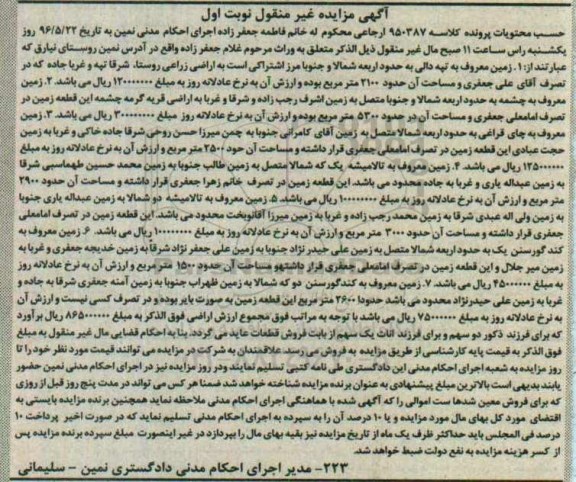 آگهی مزایده غیر منقول نوبت اول
حسب محتویات پرونده کلاسه ۹۵۰۳۸۷ ارجاعی محکوم له خانم فاطمه جعفر زاده اجرای احکام مدنی نمین به تاریخ ۹۶/۵/۲۲ روز
یکشنبه راس ساعت ۱۱ صبح مال غیر منقول ذیل الذکر متعلق به وراث مرحوم غلام جعفر زاده واقع در آدرس نمین روستای نیارق که
عبارتند از: ۱. زمین معروف به تپه دالی به حدود اربعه شمالا و جنوبا مرز اشتراکی است به اراضی زراعی روستا، شرقا تپه و غربا جاده که در
تصرف آقای علی جعفری و مساحت آن حدود ۲۱۰۰ متر مربع بوده و ارزش آن به نرخ عادلانه روز به مبلغ ۱۲۰۰۰۰۰۰۰ ریال می باشد. ۲. زمین
معروف به چشمه به حدود اربعه شمالا و جنوبا متصل به زمین اشرف رجب زاده و شرقا و غربا به اراضی قریه گرمه چشمه این قطعه زمین در
تصرف امامعلی جعفری و مساحت آن در حدود ۵۳۰۰ متر مربع بوده و ارزش آن به نرخ عادلانه روز مبلغ ۳۰۰۰۰۰۰۰۰ ریال می باشد. ۳. زمین
معروف به چای قراغی به حدود اربعه شمالا متصل به زمین آقای کامرانی جنوبا به چمن میرزا حسن روحی شرقا جاده خاکی و غربا به زمین
حجت عبادی این قطعه زمین در تصرف امامعلی جعفری قرار داشته و مساحت آن حود ۲۵۰۰ متر مربع و ارزش آن به نرخ عادلانه روز به مبلغ
۱۲۵۰۰۰۰۰۰ ریال می باشد. ۴. زمین معروف به تالامیشه یک که شمالا متصل به زمین طالب جنوبا به زمین محمد حسین طهماسبی شرقا
به زمین عبداله یاری و غربا به جاده محدود می باشد. این قطعه زمین در تصرف خانم زهرا جعفری قرار داشته و مساحت آن حدود ۲۹۰۰
متر مربع و ارزش آن به نرخ عادلانه روز به مبلغ ۱۰۰۰۰۰۰۰۰ ریال می باشد. ۵. زمین معروف به تالامیشه دو شمالا به زمین عبداله یاری جنوبا
به زمین ولی اله عبدی شرقا به زمین محمد رجب زاده و غربا به زمین میرزا آقانوبخت محدود می باشد. این قطعه زمین در تصرف امامعلی
جعفری قرار داشته و مساحت آن حدود ۳۰۰۰ متر مربع و ارزش آن به نرخ عادلانه روز به مبلغ ۱۰۰۰۰۰۰۰۰ ریال می باشد. ۶. زمین معروف به
کند گورسنن یک به حدود اربعه شمالا متصل به زمین علی حیدر نژاد جنوبا به زمین علی جعفر نژاد شرقا به زمین خدیجه جعفری و غربا به
زمین میر جلال و این قطعه زمین در تصرف امامعلی جعفری قرار داشتهو مساحت آن حدود ۱۵۰۰ متر مربع و ارزش آن به نرخ عادلانه روز
به مبلغ ۴۵۰۰۰۰۰۰ ریال می باشد. ۷. زمین معروف به کندگورسنن دو که شمالا به زمین ظهراب جنوبا به زمین آمنه جعفری شرقا به جاده و
غربا به زمین علی حیدرنژاد محدود می باشد حدودا ۲۶۰۰ متر مربع این قطعه زمین به صورت بایر بوده و در تصرف کسی نیست و ارزش آن
به نرخ عادلانه روز به مبلغ ۷۵۰۰۰۰۰۰ ریال می باشد با توجه به مراتب فوق مجموع ارزش اراضی فوق الذکر به مبلغ ۸۶۵۰۰۰۰۰۰ ریال برآورد
که برای فرزند ذکور دو سهم و برای فرزند اناث یک سهم از بابت فروش قطعات عاید می گردد. بنا به احکام قضایی مال غیر منقول به مبلغ
فوق الذکر به قیمت پایه کارشناسی از طریق مزایده به فروش می رسد. علاقمندان به شرکت در مزایده می توانند قیمت مورد نظر خود را تا
روز مزایده به شعبه اجرای احکام مدنی این دادگستری طی نامه کتبی تسلیم نمایند ودر روز مزایده نیز در اجرای احکام مدنی نمین حضور
یابند بدیهی است بالاترین مبلغ پیشنهادی به عنوان برنده مزایده شناخته خواهد شد ضمنا هر کس می تواند در مدت پنج روز قبل از روزی
که برای فروش معین شده است اموالی را که آگهی شده با هماهنگی اجرای احکام مدنی ملاحظه نماید همچنین برنده مزایده بایستی به
اقتضای مورد کل بهای مال مورد مزایده و یا ۱۰ درصد آن را به سپرده به اجرای احکام مدنی تسلیم نماید که در صورت اخیر پرداخت ۱۰
درصد فی المجلس باید حداکثر ظرف یک ماه از تاریخ مزایده نیز بقیه بهای مال را بپردازد در غیر اینصورت مبلغ سپرده برنده مزایده پس
از کسر هزینه مزایده به نفع دولت ضبط خواهد شد.
۲۲۳- مدیر اجرای احکام مدنی دادگستری نمین - سلیمانی